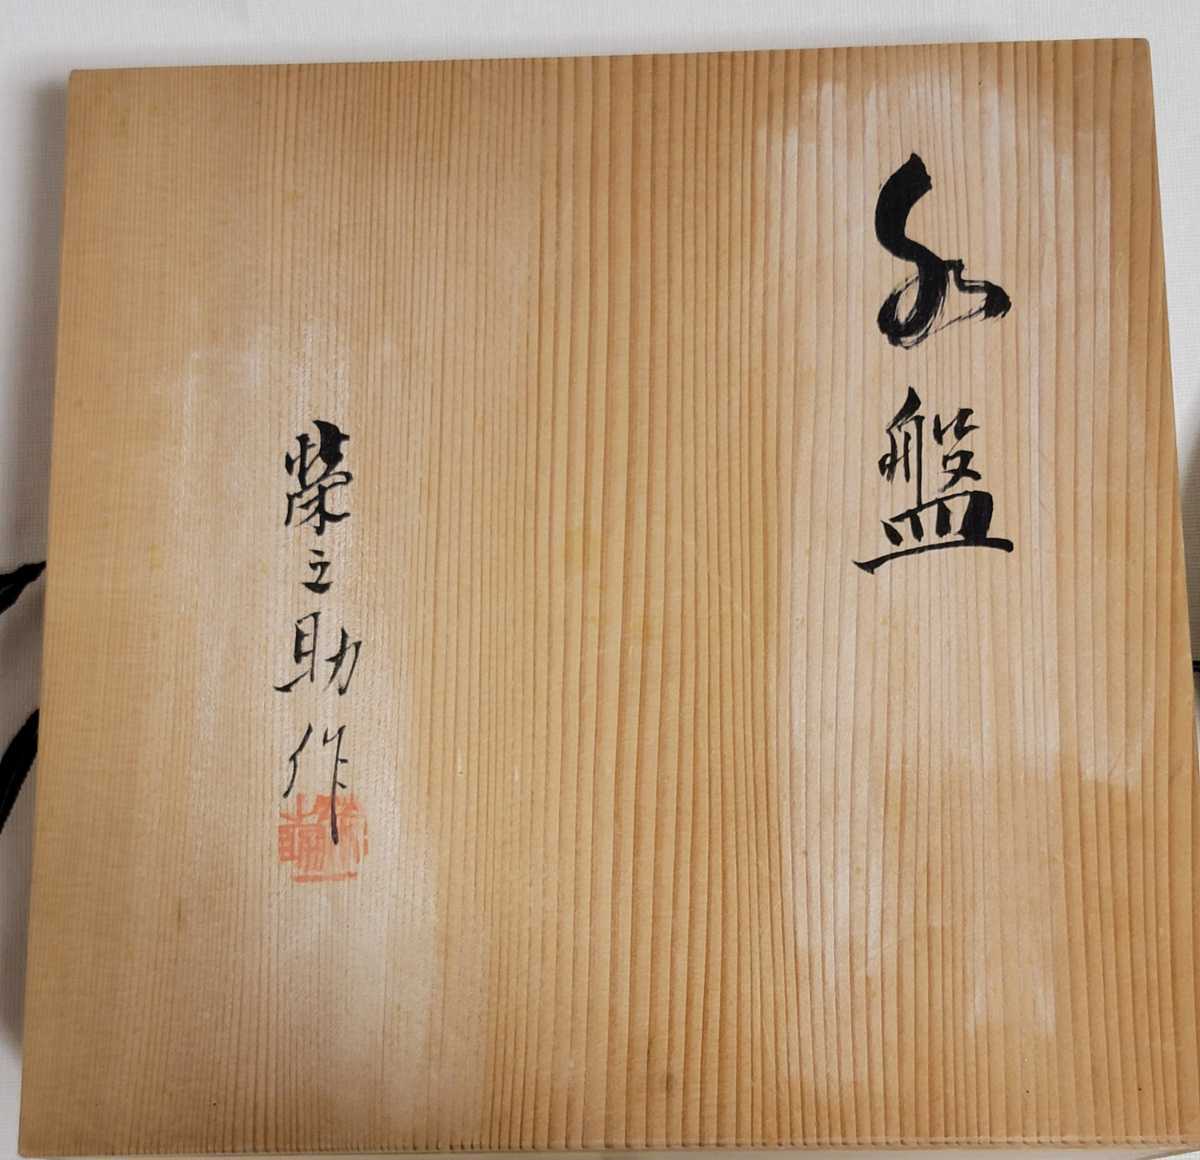 水盤
榮之助作